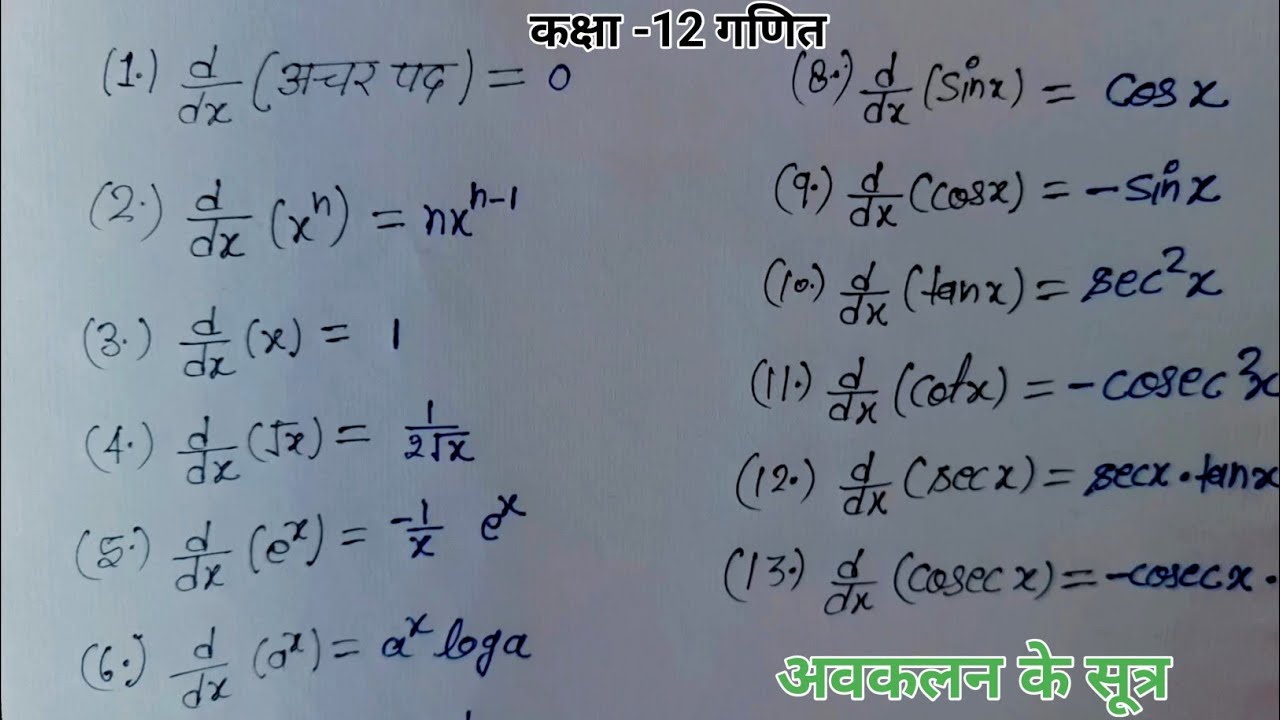 कक्षा -12 गणित
(1.) d/dx (अचर पद) = 0
(2.) d/dx (xⁿ) = nxⁿ⁻¹
(3.) d/dx (x) = 1
(4.) d/dx (√x) = 1/2√x
(5.) d/dx (eˣ) = -1/x eˣ
(6.) d/dx (aˣ) = aˣ loga
(8.) d/dx (sinx) = cosx
(9.) d/dx (cosx) = -sinx
(10.) d/dx (tanx) = sec²x
(11.) d/dx (cotx) = -cosec²x
(12.) d/dx (secx) = secx.tanx
(13.) d/dx (cosecx) = -cosecx.
अवकलन के सूत्र